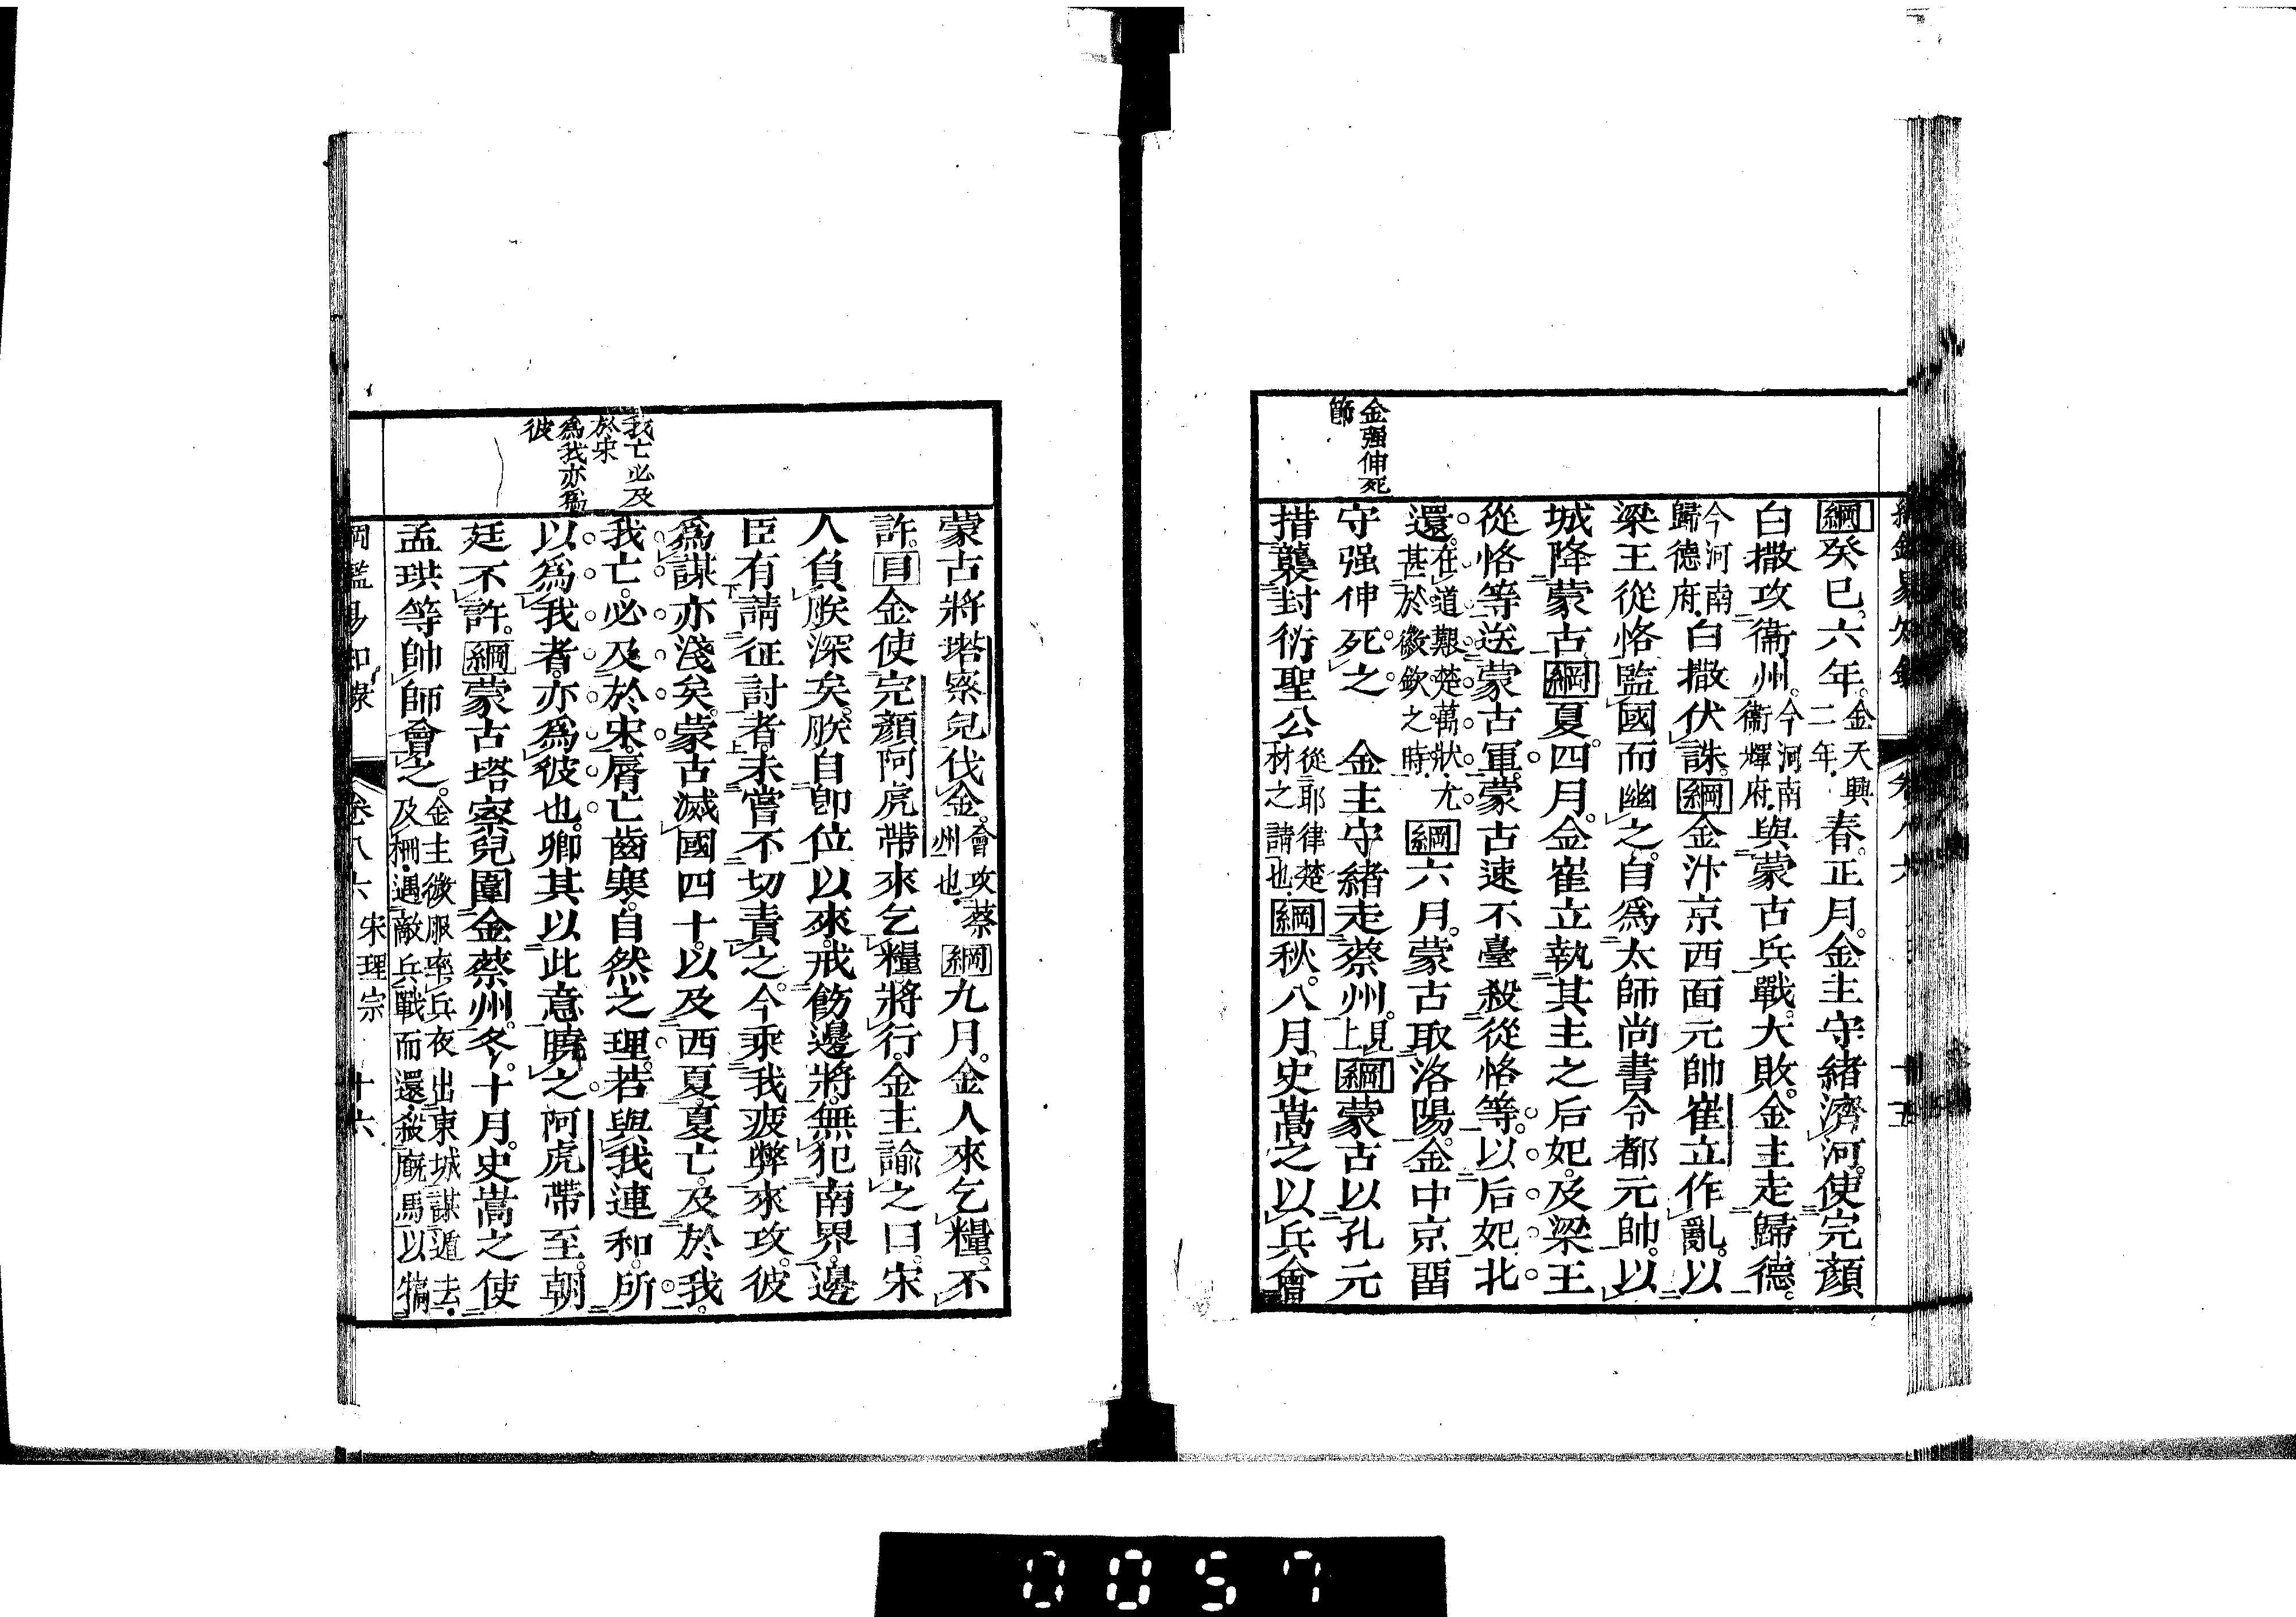 金强伸死
節
綱癸巳六年。金天興二年。春。正月。金主守緒濟河。使完顏
白撒攻衞州。今河南衞輝府。與蒙古兵戰。大敗。金主走歸德。
今河南歸德府。白撒伏誅。綱金汴京西面元帥崔立作亂。以
梁王從恪監國而幽之。自爲太師尚書令都元帥。以
城降蒙古。綱夏。四月。金崔立執其主之后妃。及梁王
從恪等送蒙古軍。蒙古速不臺殺從恪等。以后妃北
還。在道艱楚萬狀。尤甚於徽欽之時。綱六月。蒙古取洛陽。金中京留
守强伸死之。金主守緒走蔡州。見上綱蒙古以孔元
措襲封衍聖公從耶律楚材之請也。綱秋。八月。史嵩之以兵會
我亡必及
於宋
爲我亦爲
彼
蒙古將塔察兒伐金。會攻蔡州也。綱九月。金人來乞糧。不
許。目金使完顏阿虎帶來乞糧。將行。金主諭之曰。宋
人負朕深矣。朕自卽位以來。戒飭邊將。無犯南界。邊
臣有請征討者。未嘗不切責之。今乘我疲弊來攻。彼
爲謀亦淺矣。蒙古滅國四十。以及西夏。夏亡。及於我。
我亡。必及於宋。脣亡齒寒。自然之理。若與我連和。所
以爲我者。亦爲彼也。卿其以此意曉之。阿虎帶至。朝
廷不許。綱蒙古塔察兒圍金蔡州。冬。十月。史嵩之使
孟珙等帥師會之。金主微服率兵夜出東城謀遁去。及柵。遇敵兵戰而還。殺廐馬以犒
綱鑑易知錄 卷八六 宋理宗 十六
0057